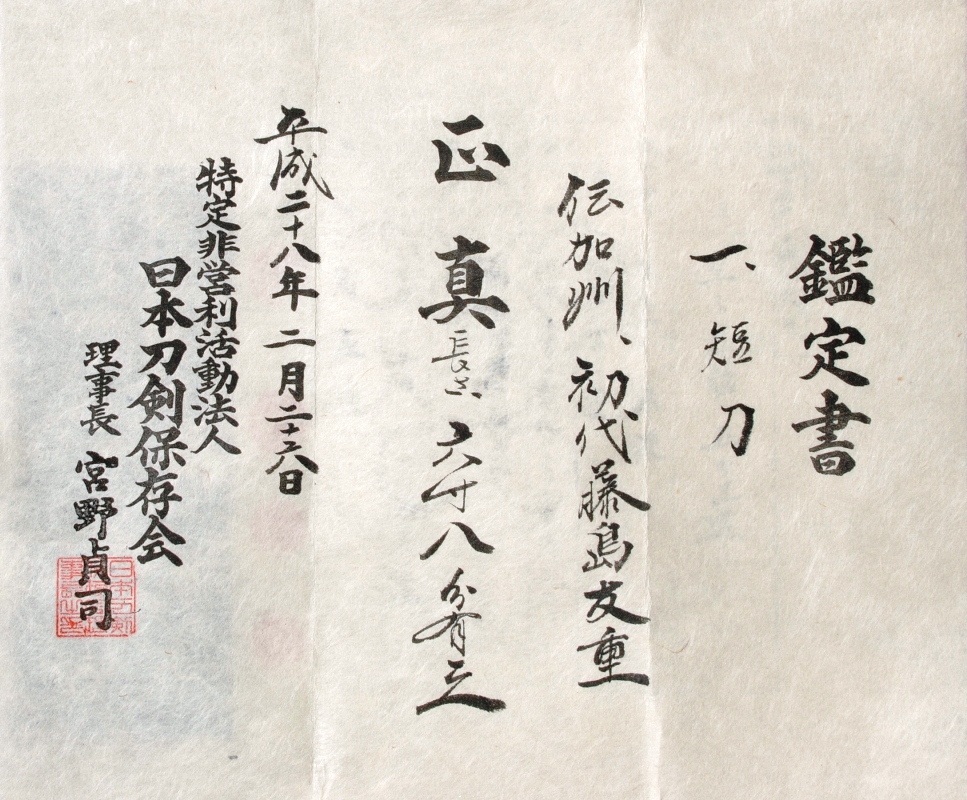 鑑定書
一、短刀
伝加州、初代藤島友重
正真長さ六寸八分有之
平成二十八年二月二十六日
特定非営利活動法人
日本刀剣保存会
理事長 宮野貞司